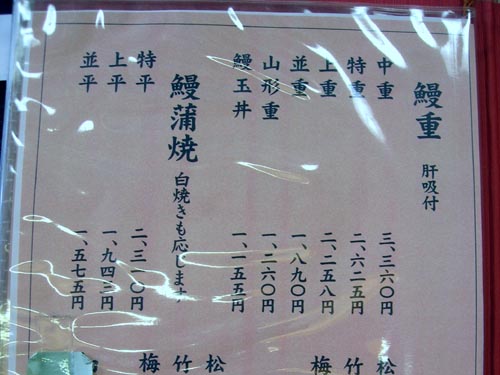 鰻重 肝吸付
中重 三、三六〇円
特重 二、六二五円
上重 二、二五八円
並重 一、八九〇円
山形重 一、二六〇円
鰻玉丼 一、一五五円
鰻蒲焼 白焼きも応じます
特平 二、三一〇円
上平 一、九四三円
並平 一、五七五円
松
竹
梅
松
竹
梅